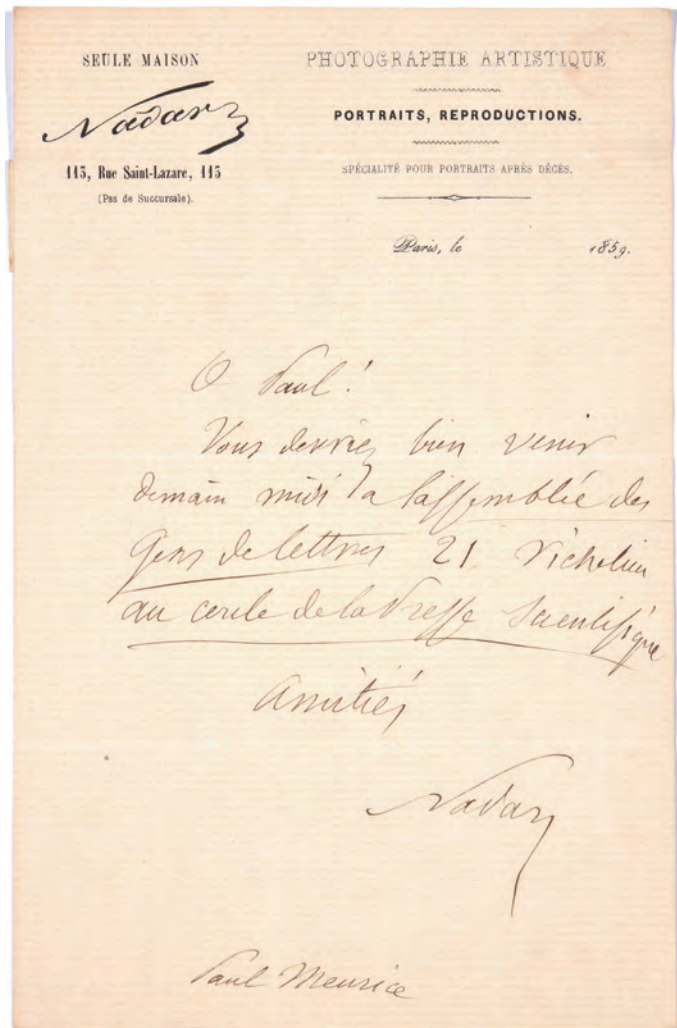 SEULE MAISON
Nadar
113, Rue Saint-Lazare, 113
(Pas de Succursale).
PHOTOGRAPHIE ARTISTIQUE
PORTRAITS, REPRODUCTIONS.
SPÉCIALITÉ POUR PORTRAITS APRÈS DÉCÈS.
Paris, le 1859.
O Paul !
Vous devriez bien venir
demain midi à l'assemblée des
Gens de lettres 21 richelieu
au cercle de la Presse Scientifique
Amitiés
Nadar
Paul Meurice